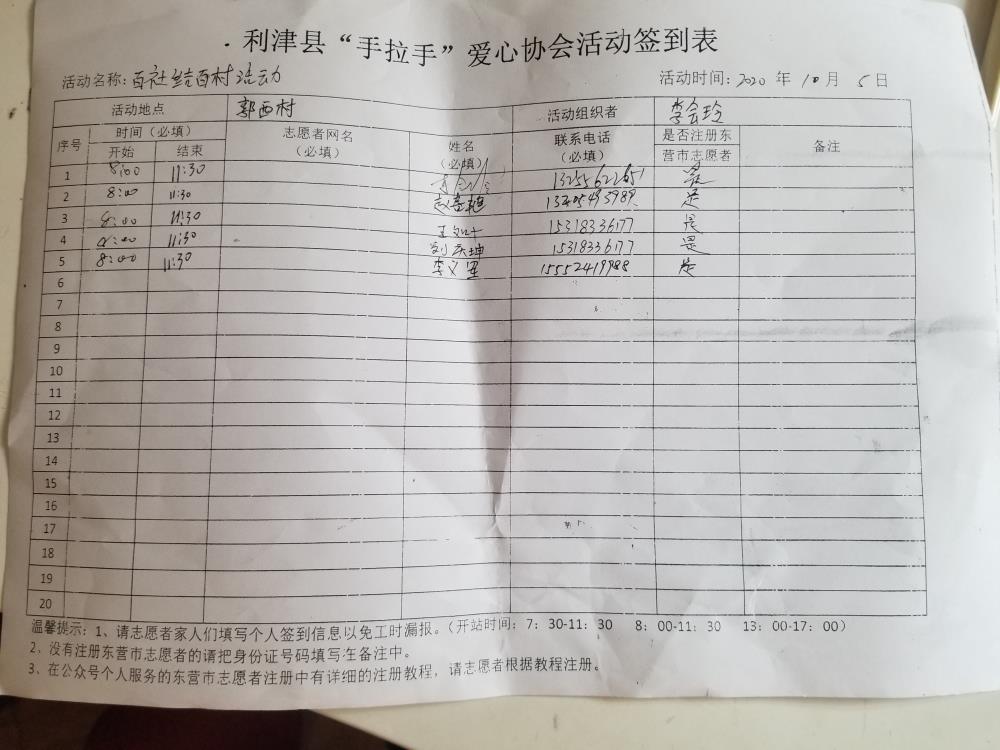 利津县“手拉手”爱心协会活动签到表
活动名称:百社结百村活动 活动时间:2020 年 10 月 5 日
活动地点 郭西村 活动组织者 李会玲
序号 时间（必填） 志愿者网名（必填） 姓名（必填） 联系电话（必填） 是否注册东营市志愿者 备注
开始 结束
1 8:00 11:30 13255622651 是
2 8:00 11:30 是
3 8:00 11:30 15318336177 是
4 8:00 11:30 刘庆坤 15318336177 是
5 8:00 11:30 15552419988 是
6
7
8
9
10
11
12
13
14
15
16
17
18
19
20
温馨提示：1、请志愿者家人们填写个人签到信息以免工时漏报。（开站时间：7：30-11：30 8：00-11：30 13：00-17：00）
2、没有注册东营市志愿者的请把身份证号码填写在备注中。
3、在公众号个人服务的东营市志愿者注册中有详细的注册教程，请志愿者根据教程注册。